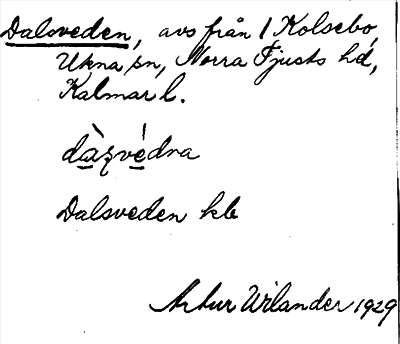 Dalsveden, avs från 1 Kolsebo,
Ukna sn, Norra Tjusts hd,
Kalmar l.
dàʒvédna
Dalsveden kb
Artur Wilander 1929